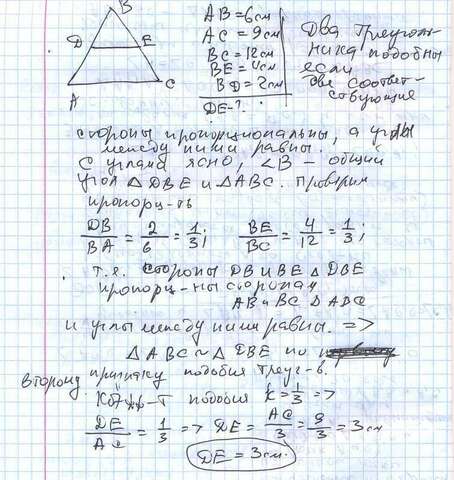 B
D E
A C
AB = 6 см
AC = 9 см
BC = 12 см
BE = 4 см
BD = 2 см
DE - ?
Два треуголь-
ника подобны
если
две соответ-
ствующие
стороны пропорциональны, а углы
между ними равны.
С углами ясно, ∠B – общий
угол △DBE и △ABC. Проверим
пропорц-ть
DB/BA = 2/6 = 1/3; BE/BC = 4/12 = 1/3;
т.е. стороны DB и BE △ DBE
пропорц-ны сторонам
AB и BC △ ABC
и углы между ними равны. =>
△ ABC ~ △ DBE по
второму признаку подобия треуг-в.
Коэф-т подобия k = 1/3 =>
DE/AC = 1/3 => DE = AC/3 = 9/3 = 3 см
DE = 3 см.